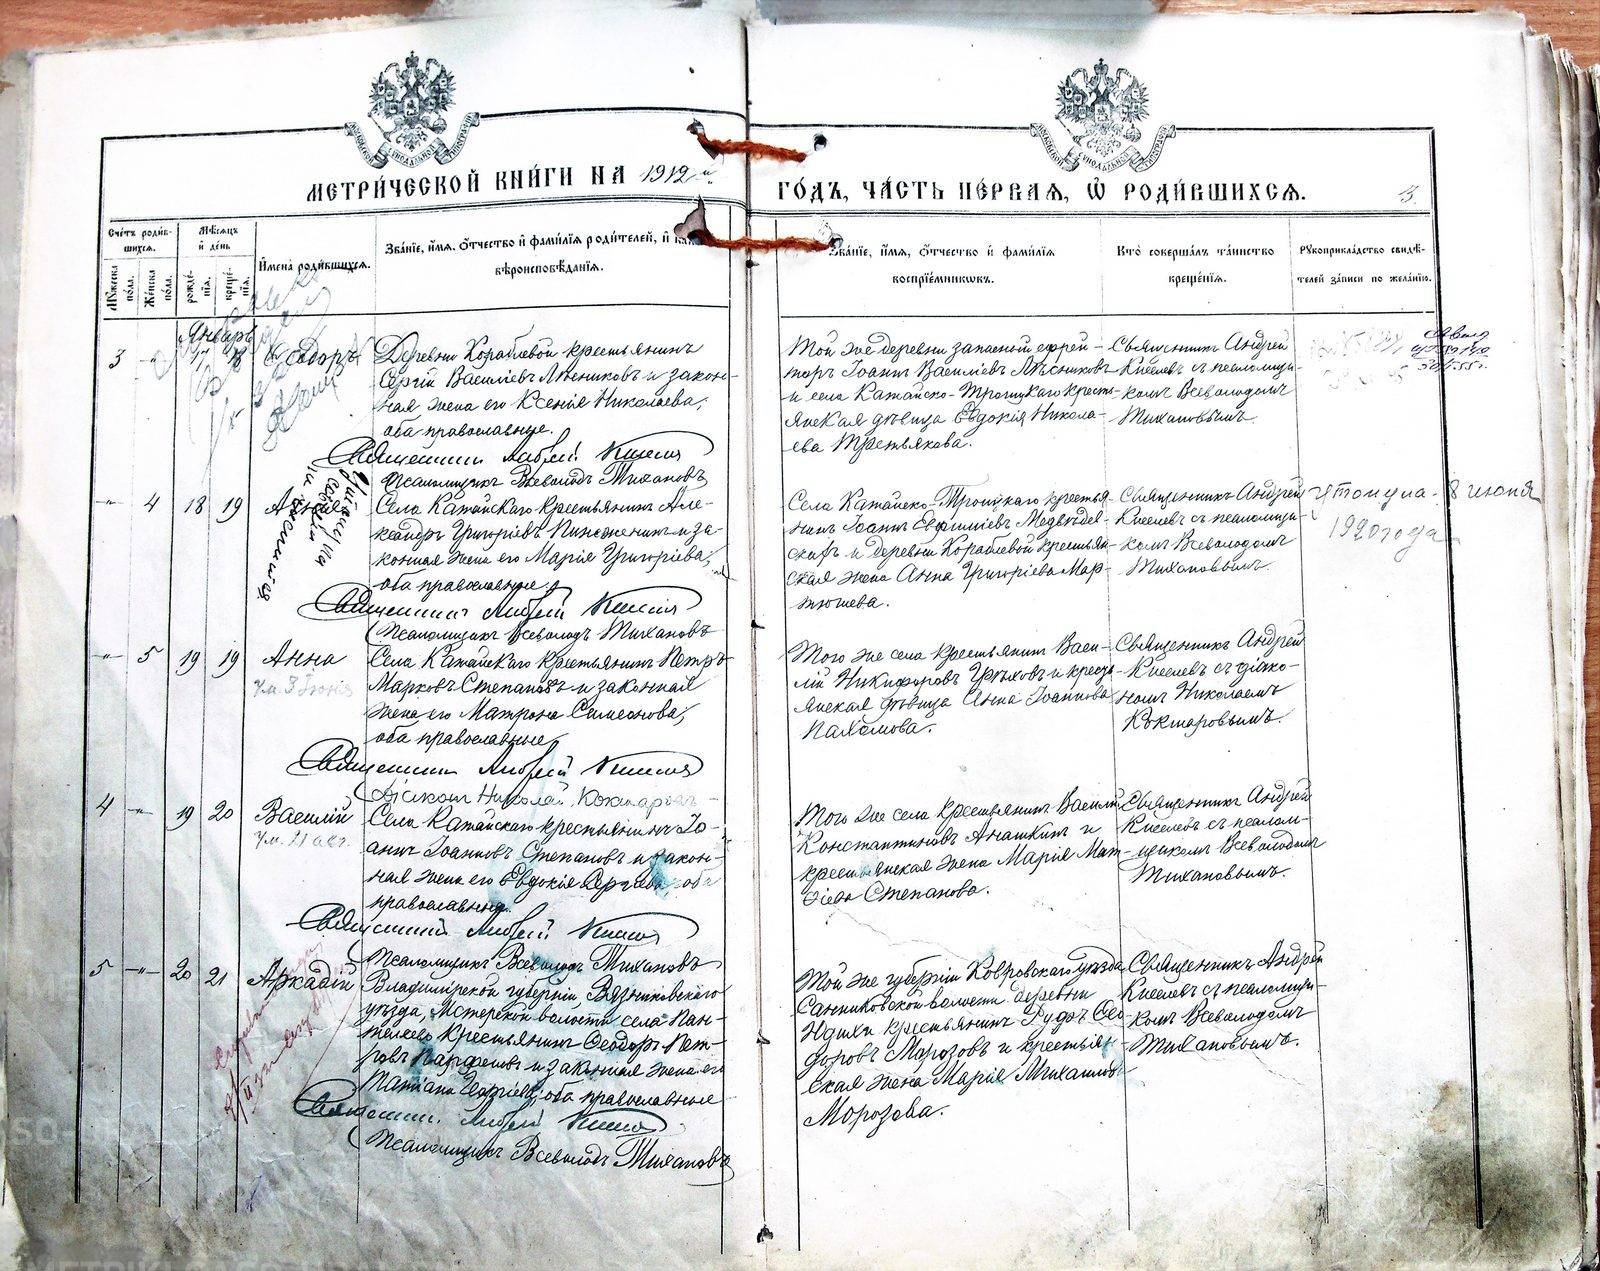 МЕТРИ́ЧЕСКОЙ КНИ́ГИ НА 1912 й
ГО́ДЪ, ЧА́СТЬ ПЕ́РВАЯ, Ѡ РОДИ́ВШИХСЯ.
13.
Сче́тъ роди́в-
шихся.
Мѣ́сяцъ
и де́нь
Му́жеска по́ла.
Же́нска по́ла.
рожде́-
нія.
креще́-
нія.
И́мена роди́вшихся.
Зва́ніе, и́мя, о́тчество и фами́лія роди́телей, и как
вѣроисповѣ́данія.
Зва́ніе, и́мя, о́тчество и фами́лія
воспріе́мниковъ.
Кто́ соверша́лъ та́инство
креще́нія.
Рукоприкла́дство свидѣ́-
телей за́писи по жела́нію.
Январь
3 -"- 17
Деревни Кораблевой крестьянинъ
Сергій Василіевъ Лѣсниковъ и закон-
ная жена его Ксенія Николаева,
оба православные.
Священникъ Андрей Киселев
Псаломщикъ Всеволодъ Тихановъ
Той же деревни запасный ефрей-
торъ Іоаннъ Василіевъ Лѣсниковъ
и села Катайско-Троицкаго крестъ-
янская дѣвица Евдокія Никола-
ева Третьякова.
Священникъ Андрей
Киселевъ съ псаломщи-
комъ Всеволодомъ
Тихановымъ.
-"- 4 18 19 Анна
Села Катайскаго крестьянинъ Але-
ксандръ Григоріевъ и за-
конная жена его Марія Григоріева,
оба православные
Священникъ Андрей Киселев
Псаломщикъ Всеволодъ Тихановъ
Села Катайско-Троицкаго крестья-
нинъ Іоаннъ Евфиміевъ Медвѣдев-
скихъ и деревни Кораблевой крестьян-
ская жена Анна Григоріева Мар-
тюшева.
Священникъ Андрей
Киселевъ съ псаломщи-
комъ Всеволодомъ
Тихановымъ.
Утонула 8 июня
1920 года
-"- 5 19 19 Анна
Ум. 3 Іюня
Села Катайскаго крестьянинъ Петръ
Марковъ Степановъ и законная
жена его Матрона Симеонова,
оба православные
Священникъ Андрей Киселев
Діаконъ Николай Кокшаровъ
Того же села крестьянинъ Васи-
лій Никифоровъ Грѣховъ и кресть-
янская дѣвица Анна Іоаннова
Пахомова.
Священникъ Андрей
Киселевъ съ діако-
номъ Николаемъ
Кокшаровымъ.
4 -"- 19 20 Василій
Ум. 21 авг.
Села Катайскаго крестьянинъ Іо-
аннъ Іоанновъ Степановъ и закон-
ная жена его Евдокія Сергіева, оба
православные.
Священникъ Андрей Киселев
Псаломщикъ Всеволодъ Тихановъ
Того же села крестьянинъ Василій
Константиновъ Анашкинъ и
крестьянская жена Марія Мат-
ѳіева Степанова.
Священникъ Андрей
Киселевъ съ псалом-
щикомъ Всеволодомъ
Тихановымъ.
5 -"- 20 21 Аркадій
Владимірской губерніи, Вязниковскаго
уѣзда, Мстерской волости села Пан-
телеево крестьянинъ Ѳеодоръ Пет-
ровъ Панфеевъ и законная жена его
Татіана Георгіева, оба православные
Священникъ Андрей Киселев
Псаломщикъ Всеволодъ Тихановъ
Той же губерніи Ковровскаго уѣзда
Санниковской волости деревни
крестьянинъ Ѳео-
доровъ Морозовъ и крестьян-
ская жена Марія Михаилова
Морозова.
Священникъ Андрей
Киселевъ съ псаломщи-
комъ Всеволодомъ
Тихановымъ.